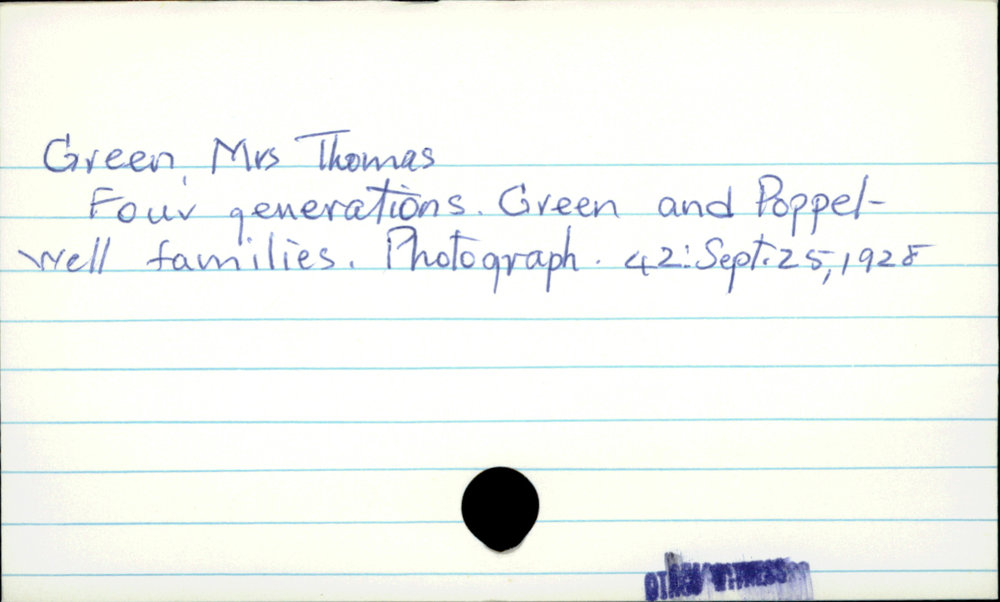 Green, Mrs Thomas
Four generations. Green and Poppel-
well families. Photograph. 42: Sept. 25, 1928
OTAGO WITNESS